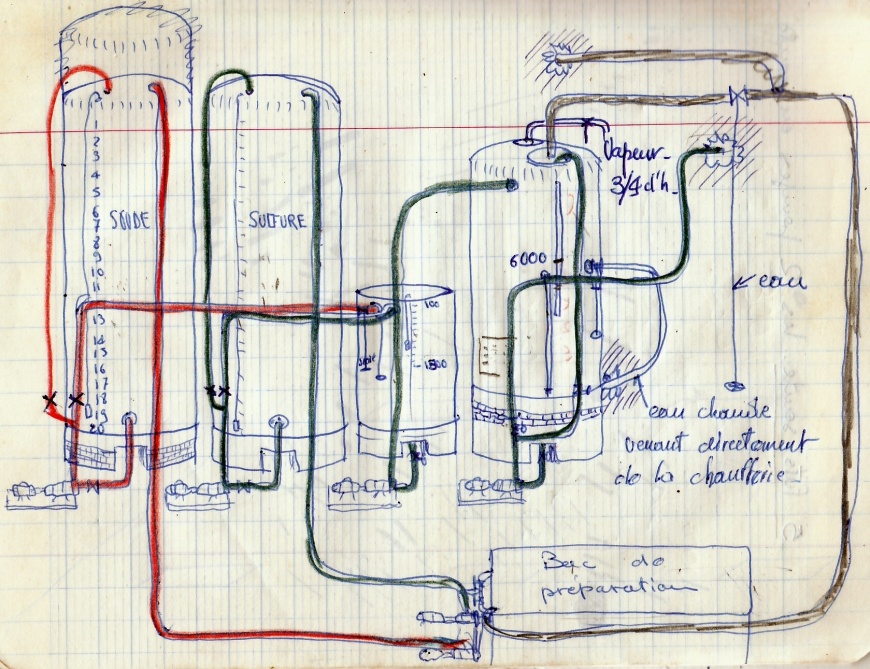 SOUDE
1
2
3
4
5
6
7
8
9
10
11
13
14
15
16
17
18
19
20
SULFURE
100
1500
6000
Vapeur
3/4 d'h
eau
eau chaude
venant directement
de la chaufferie
Bac de
préparation